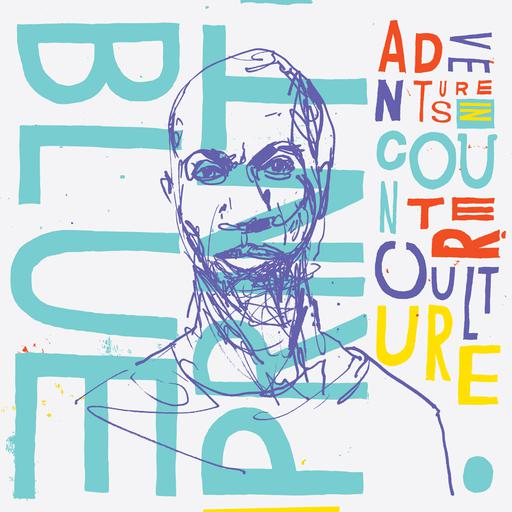 BLUE
PRINT
ADVE
NTURES IN
COU
NTER
CULT
URE